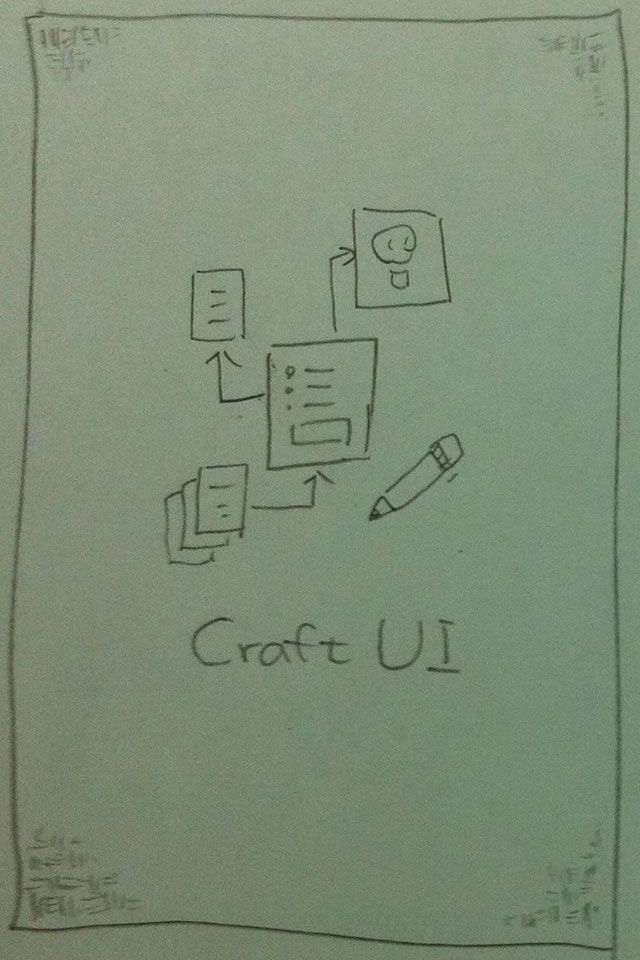 Craft UI